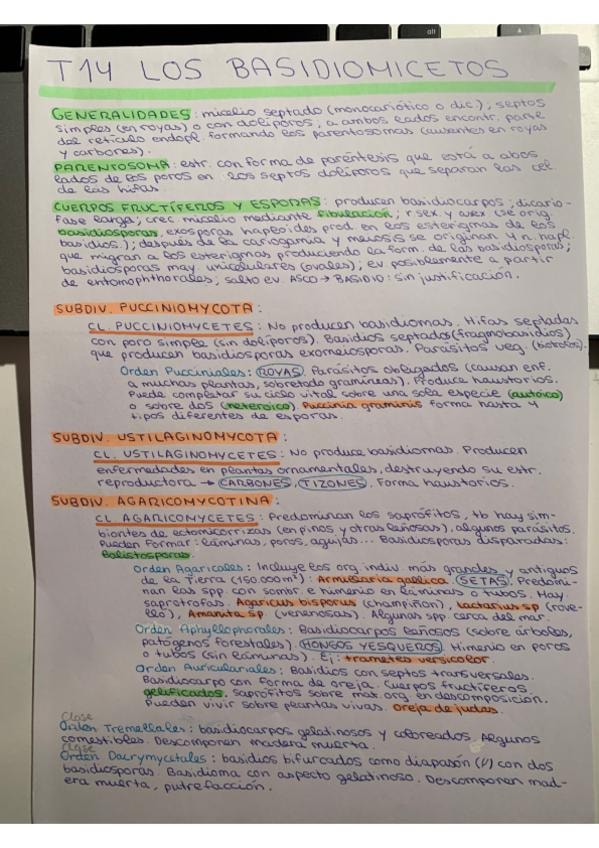 T14 LOS BASIDIOMICETOS
GENERALIDADES: micelio septado (monocariótico o dic.); septos
simples (en royas) o con dolíporos, a ambos lados encontr. parte
del retículo endopl. formando los parentosomas (ausentes en royas
y carbones).
PARENTOSOMA: estr. con forma de paréntesis que está a abos
lados de los poros en los septos dolíporos que separan las cel.
de las hifas.
CUERPOS FRUCTÍFEROS Y ESPORAS: producen basidiocarpos; dicario-
fase larga; crec. micelio mediante fibulación; r sex y asex (se orig.
basidiosporas, exosporas haploides prod. en los esterigmas de los
basidios.); después de la cariogamia y meiosis se originan 4 n. hapl.
que migran a los esterigmas produciendo la form. de las basidiosporas;
basidiosporas may. unicelulares (ovales); ev. posiblemente a partir
de entomophthorales; salto ev. ASCO → BASIDIO: sin justificación.
SUBDIV. PUCCINIOMYCOTA:
CL. PUCCINIOMYCETES: No producen basidiomas. Hifas septadas
con poro simple (sin dolíporos). Basidios septados (fragmobasidios)
que producen basidiosporas exomeiosporas. Parásitos veg. (biotrofos).
Orden Pucciniales: ROYAS. Parásitos obligados (causan enf.
a muchas plantas, sobretodo gramíneas). Produce haustorios.
Puede completar su ciclo vital sobre una sola especie (autóico)
o sobre dos (heteroico). Puccinia graminis forma hasta 4
tipos diferentes de esporas.
SUBDIV. USTILAGINOMYCOTA:
CL. USTILAGINOMYCETES: No produce basidiomas. Producen
enfermedades en plantas ornamentales, destruyendo su estr.
reproductora → CARBONES, TIZONES. Forma haustorios.
SUBDIV. AGARICOMYCOTINA:
CL AGARICOMYCETES: Predominan los saprófitos, tb hay sim-
biontes de ectomicorrizas (en pinos y otras leñosas), algunos parásitos.
Pueden formar: láminas, poros, agujas... Basidiosporas disparadas:
Balistosporas.
Orden Agaricales: Incluye los org. indiv. más grandes y antiguos
de la Tierra (150.000m²): Armillaria gallica. SETAS. Predomi-
nan las spp. con sombr. e himenio en láminas o tubos. Hay
saprotrofas. Agaricus bisporus (champiñon), Lactarius sp (rove-
lló), Amanita sp (venenosas). Algunas spp. cerca del mar.
Orden Aphyllophorales: Basidiocarpos leñosos (sobre árboles,
patógenos forestales). HONGOS YESQUEROS. Himenio en poros
o tubos (sin láminas). Ej: trametes versicolor.
Orden Auriculariales: Basidios con septos transversales.
Basidiocarpo con forma de oreja. Cuerpos fructíferos
gelificados. Saprófitos sobre mat. org. en descomposición.
Pueden vivir sobre plantas vivas. Oreja de judas.
Clase
Orden Tremellales: basidiocarpos gelatinosos y coloreados. Algunos
comestibles. Descomponen madera muerta.
Clase
Orden Dacrymycetales: basidios bifurcados como diapasón (Y) con dos
basidiosporas. Basidioma con aspecto gelatinoso. Descomponen mad-
era muerta, putrefacción.